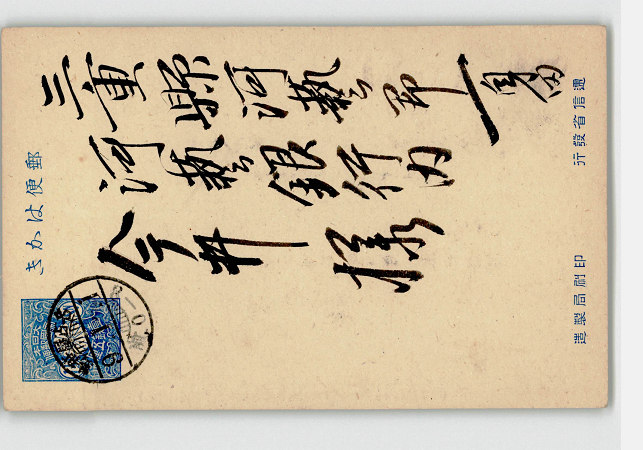 郵便はかき
三重縣河藝郡一身田
河藝銀行内
今井 様
遞信省發行
印刷局製造